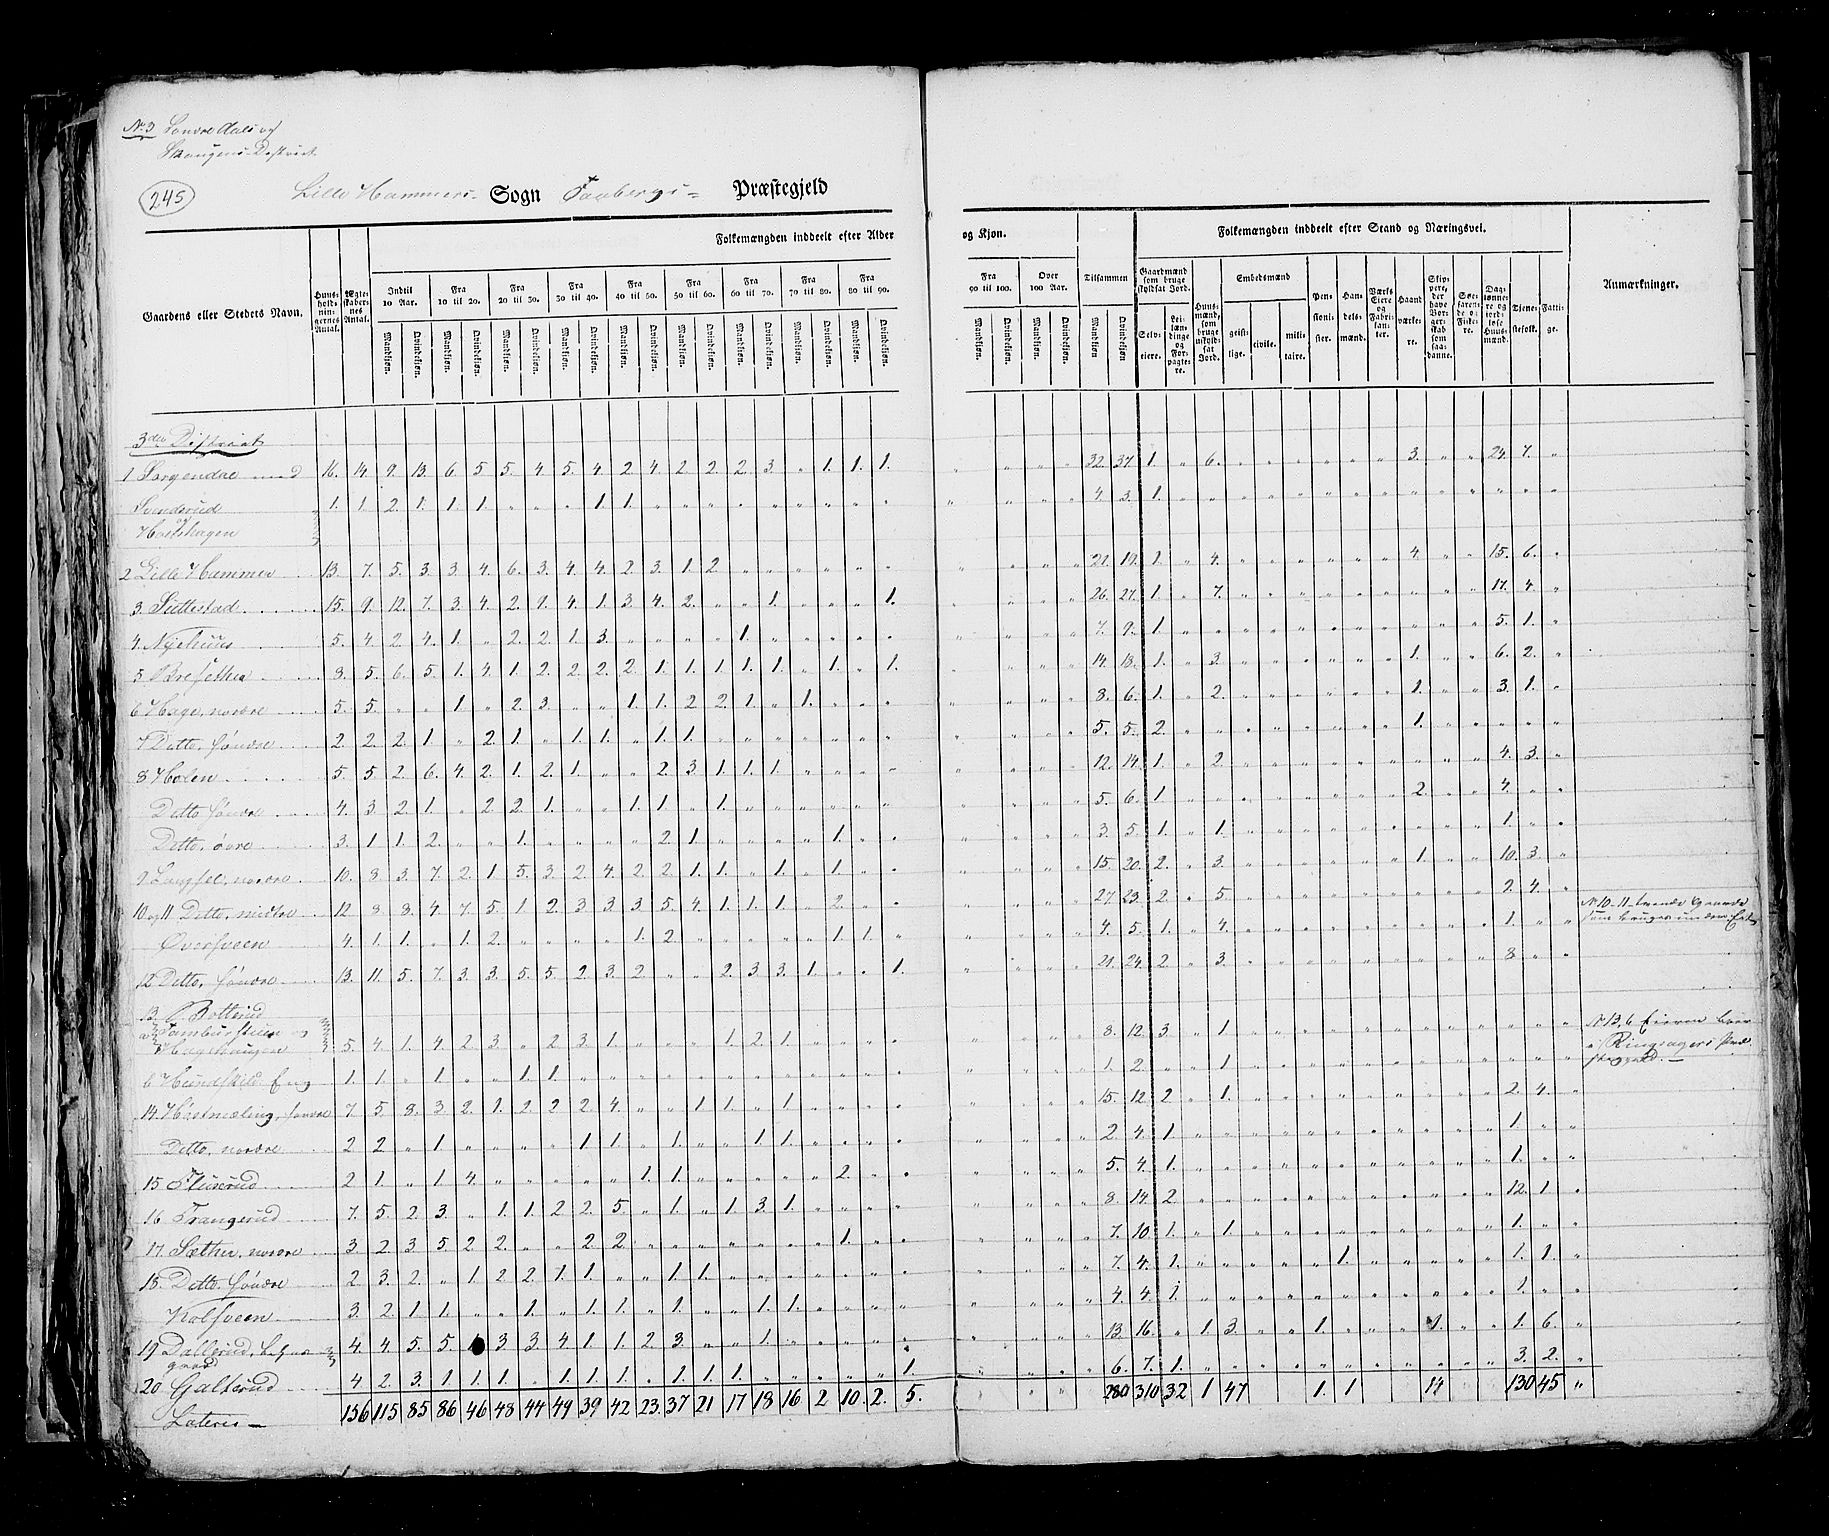 No 3 Søndre Aals og
Skougens District
245
Lille Hammers Sogn Faabergs Præstegjeld
Folkemængden inddeelt efter Alder og Kjøn.
Folkemængden inddeelt efter Stand og Næringsvei.
Gaardens eller Stedets Navn.
Huusholdningernes Antal.
Ægteskabernes Antal.
Indtil 10 Aar.
Fra 10 til 20.
Fra 20 til 30.
Fra 30 til 40.
Fra 40 til 50.
Fra 50 til 60.
Fra 60 til 70.
Fra 70 til 80.
Fra 80 til 90.
Fra 90 til 100.
Over 100 Aar.
Tilsammen
Mandkjøn. Qvindekjøn.
Gaardmænd som bruge skyldsat Jord.
Selveiere.
Leilændinge og Forpagtere.
Huusmænd, som bruge uskyldsat Jord.
Embedsmænd
geistlige.
civile.
militaire.
Pensionister.
Handelsmænd.
Værks Eiere og Fabrikanter.
Haandværkere.
Skippere, der have Borgerskab som saadanne.
Søefarende og Fiskere.
Daglønnere og jordløse Huusmænd.
Tjenestefolk.
Fattige.
Anmærkninger.
3die District
1 Sorgendal med 16. 14. 9. 13. 6 5 5. 4 5. 4 2 4. 2 2 2 3 " 1. 1. 1. 32. 37 1. " 6. 3. 24. 7.
Svendsrud 1. 1. 2. 1. 1. 1. 1. 1. 4 3. 1.
og
2 Lille Hammer 13. 7. 5. 3. 3. 4. 6. 3. 4. 4. 2 3. 1. 2 21. 19. 1. 4. 4 15. 6.
3. Suttestad 15. 9. 12. 7. 3. 4. 2. 9. 4. 1. 3. 4. 2. 1. 1. 26. 27. 1. 7. 17. 4.
4. Nyehuus 5. 4 2 4. 1. 2 2 1 3. 1. 7. 9. 1. 5. 1.
5 Bresethra 8. 5. 6. 5. 1. 4. 1. 2 2 2 2 1. 1. 1. 1. 1. 1. 1. 14. 18. 1. 3. 1. 6. 2.
6 Hage, nordre 5. 5. 1. 2. 3. 1. 1. 2 2 1. 1. 8. 6. 1. 2. 1. 3. 1.
7 Ditto, søndre 2. 2. 2. 1 2. 1. 1. 1. 1. 1. 5. 5. 2. 1.
8 Holen 5. 5. 2. 6. 4. 2. 1. 2. 1. 2. 3. 1. 1. 1. 12. 14. 1. 2. 4. 3.
Ditto søndre 4. 3. 2. 1. 2 2. 1. 1. 1. 1. 5. 6. 1. 2. 4.
Ditto, øvre 3. 1 1. 2. 1. 2. 1. 1. 3. 5. 1. 1. 1.
9 Langsel, nordre 10. 8 3. 7. 2. 1 5. 3. 2 4. 2 2. 1. 1. 1. 1. 15. 20. 2. 3. 1. 10. 3.
10 og 11 Ditto, midtre 12 8 8. 4 7. 5. 1 2. 3 3. 3. 5. 4 1. 1. 1. 2. 27. 23. 2. 5. 2. 4.
Oversveen 4. 1. 1. 1. 2. 1. 2. 1. 1. 4. 5. 1. 4. 1.
12 Ditto, søndre 13. 11. 5. 7. 3. 3. 5. 5. 2. 3. 2. 2. 3. 3. 1. 1. 21. 24. 2. 3. 8
13. Rotterud
5. 4. 1. 4. 2 3. 2. 3. 1. 1. 2. 1. 8. 12. 3. 1.
b Hundskild Eng 1. 1. 1. 1. 1. 1. 2. 1.
14. søndre 7. 5. 8. 3. 2. 1. 2. 2 2 4. 1. 1. 1. 15. 12. 2. 1. 2. 4.
Ditto, nordre 2 2 1. 1. 1. 1. 1. 1. 2. 4. 1 1.
15 Flixrud 2 1. 1 4. 1. 1. 2. 5. 4. 1. 1.
16 Trangerud 7. 5 2 3. 1. 1. 2 2. 5. 1. 1. 3. 1. 8. 14. 2. 12. 1.
17. Sæther, nordre 3. 2 3. 5. 2 2. 2. 2. 1. 7. 10. 1. 1. 1.
18. Ditto, søndre 2 3. 2. 1. 2 2. 1. 1. 1. 1. 7. 4. 1. 1. 1. 1.
Kolsveen 3. 2. 1. 1. 1. 1. 1. 1. 1. 1. 4. 4. 1 1.
19 Dallerud 4. 4 5. 5. 3 3. 4. 1. 1. 2. 3. 1. 13. 16. 1. 3. 1. 1. 1. 6.
20 Galterud 4 2 3. 1. 1. 1. 1. 1. 1. 1. 1. 1. 1. 6. 7. 1. 3. 2.
Lateris 136 115 85 86 46 48 44 49 39 42 23. 37 21 17 18 16 2 10. 2. 5. 280 310 32 1 47 1. 1 14 130 45 "
No 10-11
No 13, b Eieren boer
i Ringsagers Præ
stegjeld.